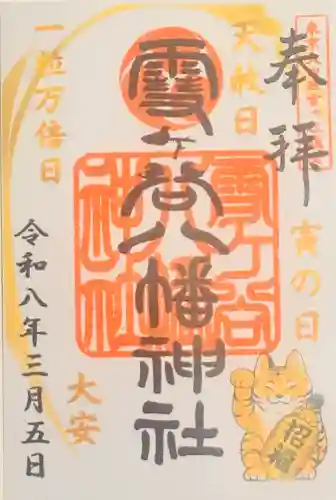 奉拝
天赦日
寅の日
雪ヶ谷八幡神社
一粒万倍日
大安
令和八年三月五日
雪ヶ谷
八幡
神社
招福